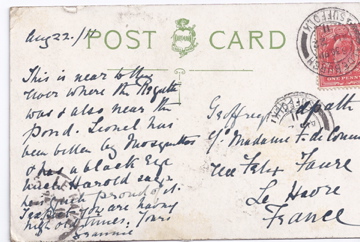 Aug 22. / 11
POST CARD
This is near to the
River where the Regatta
was & also near the
Pond. Lionel has
been bitten by Mosquitos
& has a black Eye
which Harold says
he is quite proud of.
you are having
high old times. Yours
Geoffrey
c/o Madame
rue Felix Faure
Le Havre
France
SUFFOLK
ONE PENNY